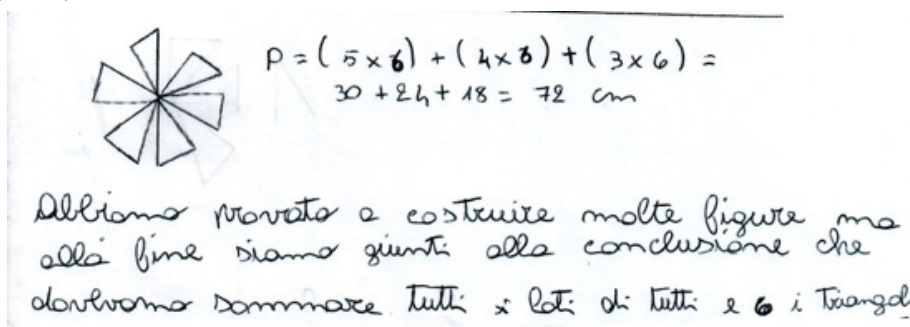 P = ( 5 x 6 ) + ( 4 x 6 ) + ( 3 x 6 ) =
30 + 24 + 18 = 72 cm
Abbiamo provato a costruire molte figure ma
alla fine siamo giunti alla conclusione che
dovevamo sommare tutti i lati di tutti e 6 i triangol